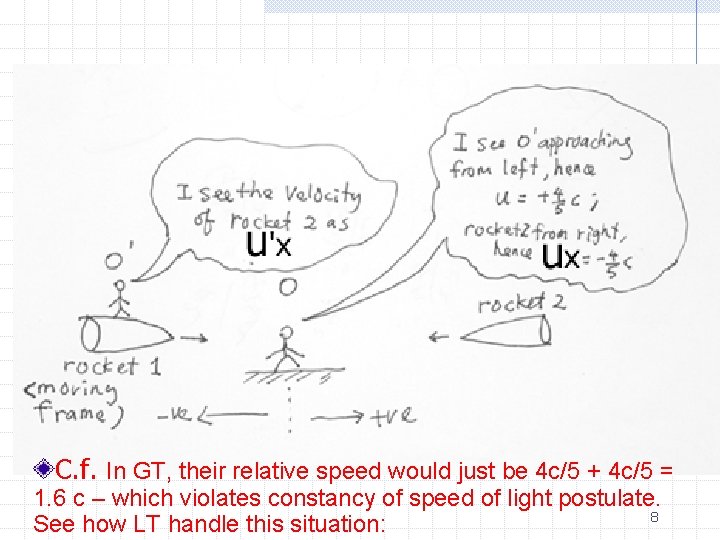 I see the velocity
of rocket 2 as
u'x
I see O' approaching
from left, hence
u = +4/5 c ;
rocket 2 from right,
hence ux = -4/5 c
O'
O
rocket 1
<moving
frame)
rocket 2
-ve
+ve
C.f. In GT, their relative speed would just be 4c/5 + 4c/5 =
1.6 c – which violates constancy of speed of light postulate.
See how LT handle this situation:
8